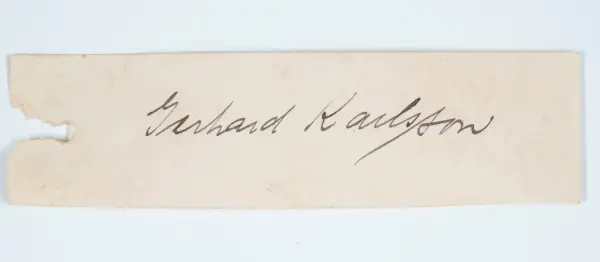 Gerhard Karlsson